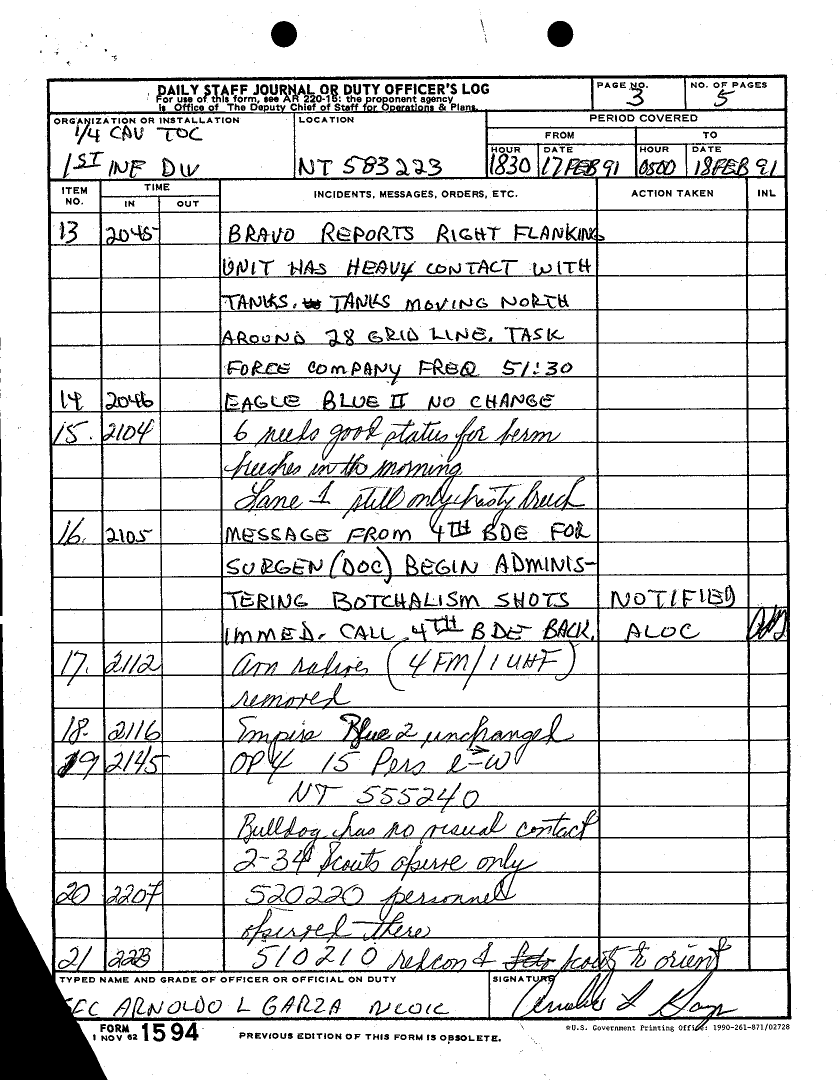 DAILY STAFF JOURNAL OR DUTY OFFICER'S LOG
For use of this form, see AR 220-15; the proponent agency
is Office of The Deputy Chief of Staff for Operations & Plans.
PAGE NO. 3
NO. OF PAGES 5
ORGANIZATION OR INSTALLATION
1/4 CAV TOC
1ST INF DIV
LOCATION
NT 583223
PERIOD COVERED
FROM TO
HOUR DATE HOUR DATE
1830 17 FEB 91 0500 18 FEB 91
ITEM NO. TIME IN OUT INCIDENTS, MESSAGES, ORDERS, ETC. ACTION TAKEN INL
13 2045 BRAVO REPORTS RIGHT FLANKING
UNIT HAS HEAVY CONTACT WITH
TANKS. TANKS MOVING NORTH
AROUND 28 GRID LINE. TASK
FORCE COMPANY FREQ 51:30
14 2046 EAGLE BLUE II NO CHANGE
15. 2104 6 needs good status for berm
breeches in the morning
Lane 1 still only breech
16. 2105 MESSAGE FROM 4TH BDE FOR
SURGEN (DOC) BEGIN ADMINIS-
TERING BOTCHALISM SHOTS NOTIFIED
IMMED. CALL 4TH BDE BACK. ALOC
17. 2112 (4 FM/1 UHF)
removed
18. 2116 Empire Blue 2 unchanged
19 2145 OP 4 15 Pers E-W
NT 555240
Bulldog has no visual contact
2-34 Scouts opserve only
20 2207 520220 personnel
opserved there
21 223 510210 redcon 1 scouts to orient
TYPED NAME AND GRADE OF OFFICER OR OFFICIAL ON DUTY
SFC ARNOLDO L GARZA NCOIC
SIGNATURE
Arnoldo L Garza
FORM 1 NOV 62 1594
PREVIOUS EDITION OF THIS FORM IS OBSOLETE.
*U.S. Government Printing Office: 1990-261-871/02728